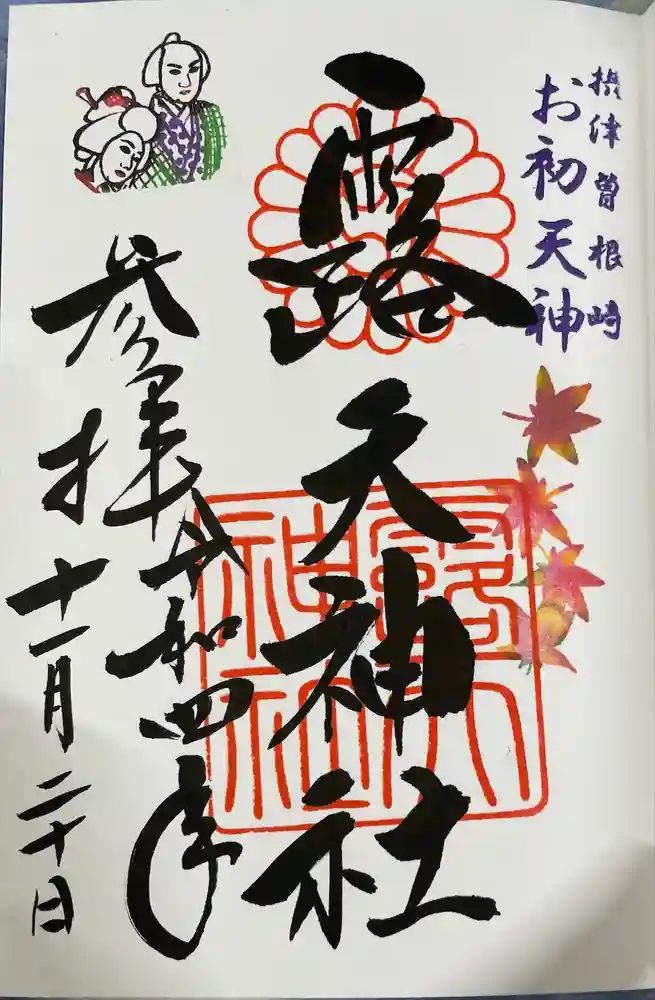 摂津曽根崎
お初天神
露天神社
露天
神社
参拝令和四年
十一月二十日